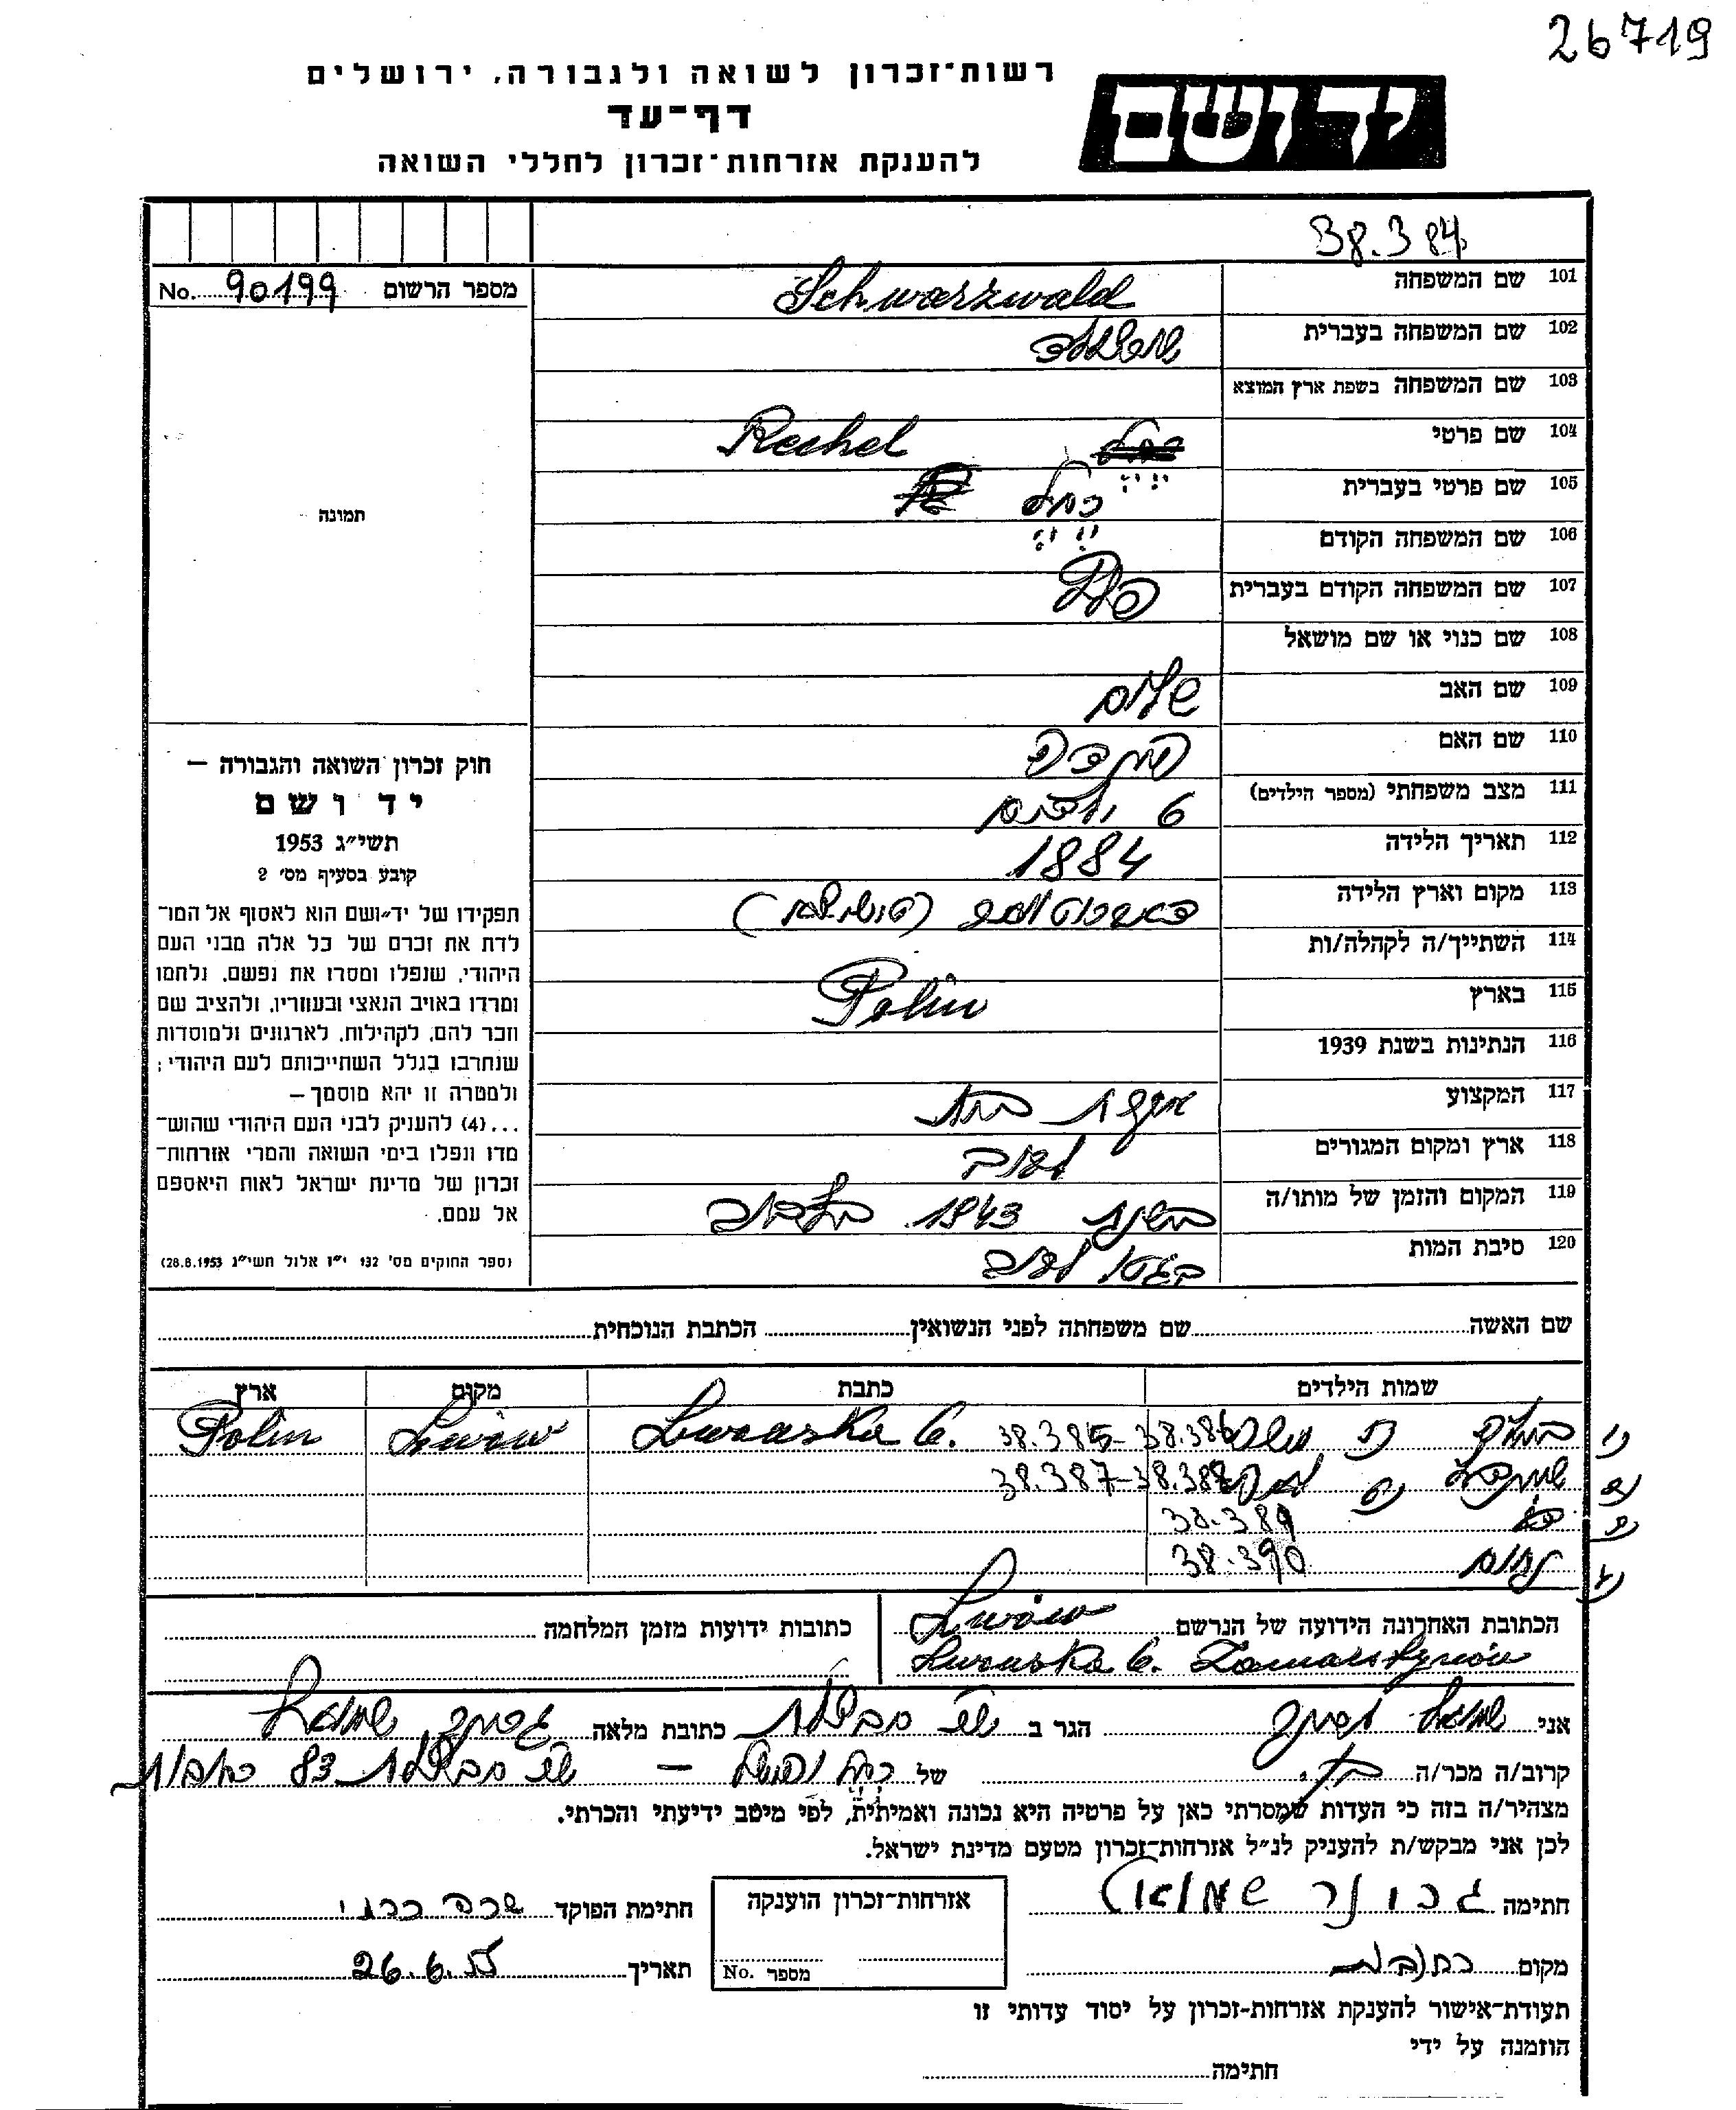 26719
רשות־זכרון לשואה ולגבורה, ירושלים
יד ושם
דף־עד
להענקת אזרחות־זכרון לחללי השואה
38.384
מספר הרשום No. 90199
תמונה
חוק זכרון השואה והגבורה —
יד ושם
תשי״ג 1953
קובע בסעיף מס׳ 2
תפקידו של יד־ושם הוא לאסוף אל המו־
לדת את זכרם של כל אלה מבני העם
היהודי, שנפלו ומסרו את נפשם, נלחמו
ומרדו באויב הנאצי ובעוזריו, ולהציב שם
וזכר להם, לקהילות, לארגונים ולמוסדות
שנחרבו בגלל השתייכותם לעם היהודי;
ולמטרה זו יהא מוסמך—
...(4) להעניק לבני העם היהודי שהוש־
מדו ונפלו בימי השואה והמרי אזרחות־
זכרון של מדינת ישראל לאות היאספם
אל עמם.
(ספר החוקים מס׳ 132 י״ז אלול תשי״ג 28.8.1953)
101 שם המשפחה Schwarzwald
102 שם המשפחה בעברית
103 שם המשפחה בשפת ארץ המוצא
104 שם פרטי Rechel
105 שם פרטי בעברית רחל
106 שם המשפחה הקודם
107 שם המשפחה הקודם בעברית
108 שם כנוי או שם מושאל
109 שם האב שלום
110 שם האם
111 מצב משפחתי (מספר הילדים) 6 ילדים
112 תאריך הלידה 1884
113 מקום וארץ הלידה
114 השתייך/ה לקהלה/ות
115 בארץ Polin
116 הנתינות בשנת 1939
117 המקצוע עקרת בית
118 ארץ ומקום המגורים לבוב
119 המקום והזמן של מותו/ה בשנת 1943 בלבוב
120 סיבת המות בגטו לבוב
שם האשה שם משפחתה לפני הנשואין הכתבת הנוכחית
שמות הילדים כתבת מקום ארץ
38.385-38.386 Lwowska 6. Lwów Polin
38.387-38.388
38.389
נחום 38.390
הכתובת האחרונה הידועה של הנרשם Lwów
Lwowska 6. Zamarstynów
כתובות ידועות מזמן המלחמה
אני שמואל הגר ב כתובת מלאה שמואל
קרוב/ה מכר/ה בן של רחל — 83 רחובות
מצהיר/ה בזה כי העדות שמסרתי כאן על פרטיה היא נכונה ואמיתית, לפי מיטב ידיעתי והכרתי.
לכן אני מבקש/ת להעניק לנ״ל אזרחות־זכרון מטעם מדינת ישראל.
חתימה שמואל
אזרחות־זכרון הוענקה
מספר No.
חתימת הפוקד
מקום רחובות
תאריך 26.6.55
תעודת־אישור להענקת אזרחות־זכרון על יסוד עדותי זו
הוזמנה על ידי
חתימה